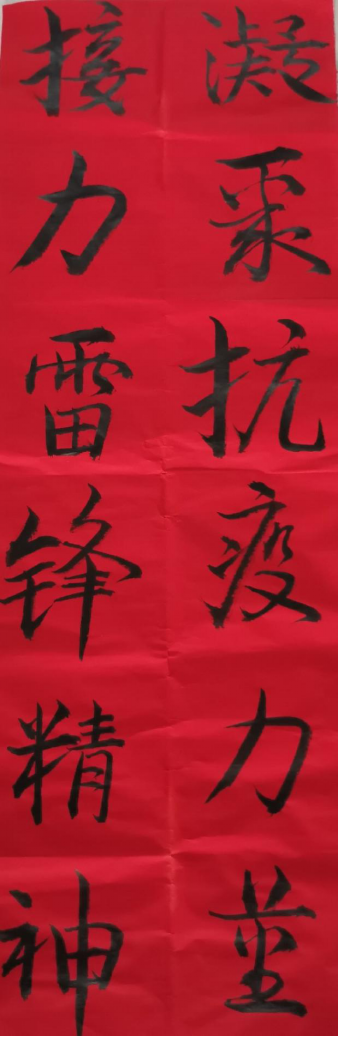 凝聚抗疫力量
接力雷锋精神